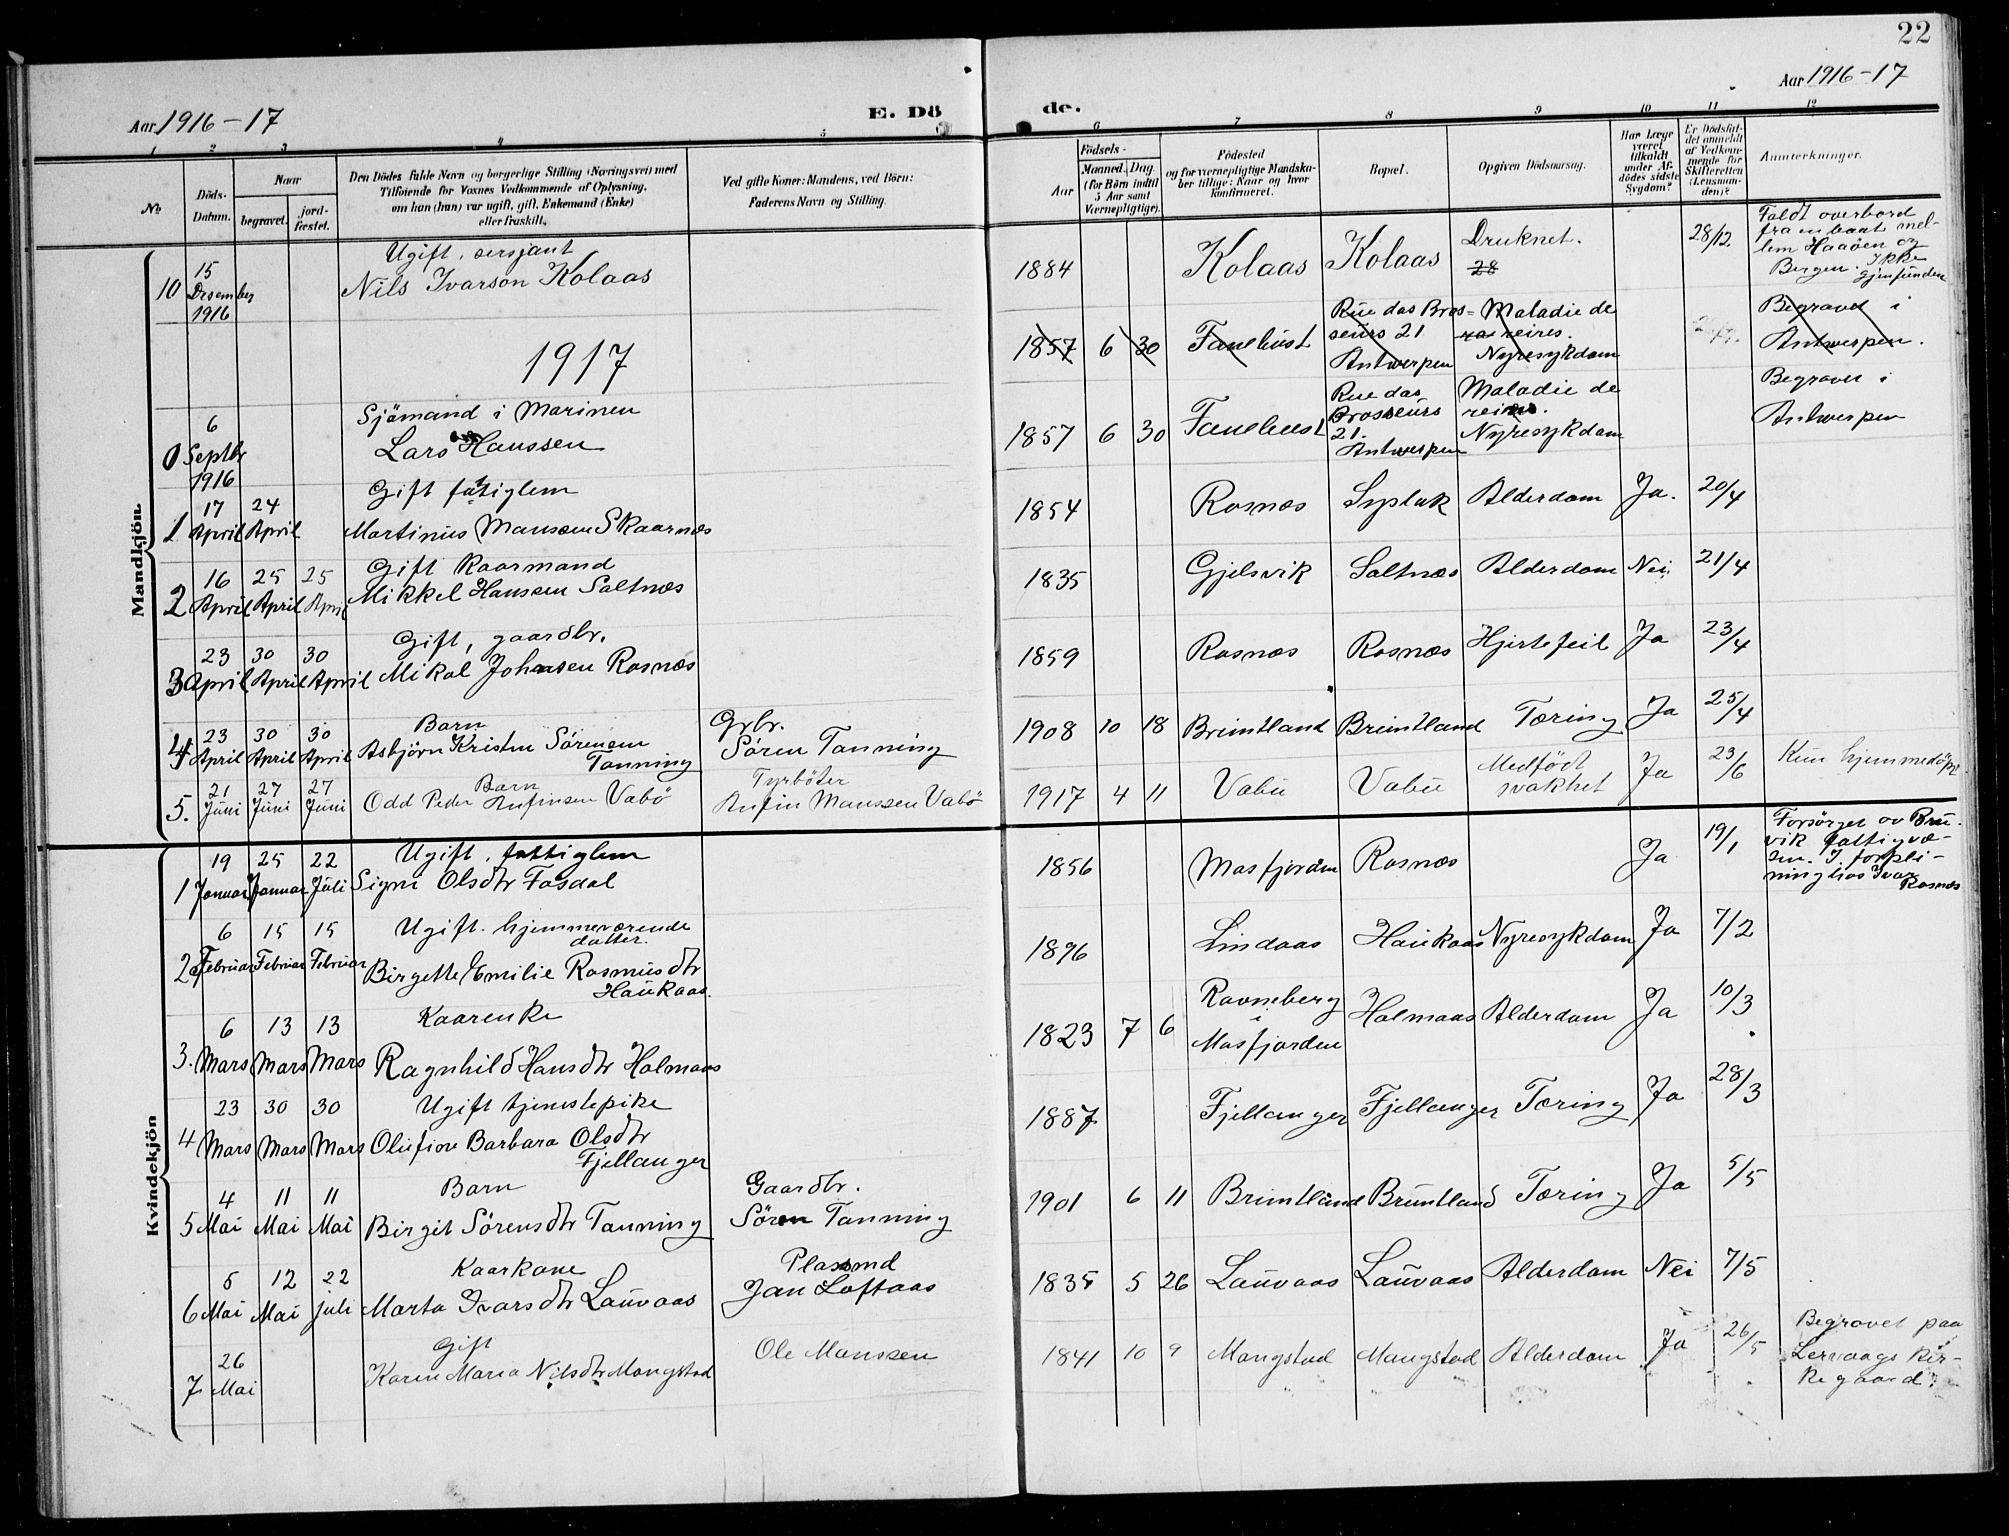 22
Aar 1916-17
Aar 1916-17
E. Dö
de.
1 2 3 4 5
6 7 8 9 10 11 12
No
Döds-
Datum.
Naar
begravet.
jord-
fæstet.
Den Dödes fulde Navn og borgerlige Stilling (Næringsvei) med
Tilföiende for Voxnes Vedkommende af Oplysning,
om han (hun) var ugift, gift, Enkemand (Enke)
eller fraskilt.
Ved gifte Koner: Mandens, ved Börn:
Faderens Navn og Stilling.
Födsels-
Aar
Maaned. Dag.
(for Börn indtil
5 Aar samt
Værnepligtige).
Födested
og for værnepligtige Mandska-
ber tillige: Naar og hvor
konfirmeret.
Bopæl.
Opgiven Dödsaarsag.
Har Læge
været
tilkaldt
under Af-
dödes sidste
Sygdom?
Er Dödsfal-
det anmeldt
af Vedkom-
mende for
Skifteretten
(Lensman-
den)?
Anmærkninger.
Mandkjön.
10 15 Desember 1916
Ugift, sersjant
Nils Ivarson Kolaas
1884 Kolaas Kolaas Druknet.
28
28/12
Faldt overbord
fra en baat mel-
lem Haaöen og
Bergen. Ikke
gjenfunden
1917
1857 6 30 Fanebust
Rue das Bros-
seurs 21
Antwerpen
Maladie de
reires.
Nyresykdom
Begravet i
Antwerpen.
0 6 Septbr 1916
Sjömand i Marinen
Lars Hanssen
1857 6 30 Fanebust
Rue das
Brosseurs
21.
Antwerpen
Maladie de
reires.
Nyresykdom
Begravet i
Antwerpen
1 17 April 24 April
Gift fattiglem
Martinus Monsen Skaarnæs
1854 Rosnes Syslak Alderdom Ja. 20/4
2 16 April 25 April 25 April
Gift Kaarmand
Mikkel Hansen Saltnæs
1835 Gjelsvik Saltnæs Alderdom Nei 21/4
3 23 April 30 April 30 April
Gift, gaardbr.
Mikal Johnsen Rosnæs
1859 Rosnæs Rosnæs Hjertefeil Ja 23/4
4 23 April 30 April 30 April
Barn
Asbjörn Kristen Sörensen
Tanning
Grbr.
Sören Tanning
1908 10 18 Brimtland Breimtland Tæring Ja 25/4
5. 21 Juni 27 Juni 27 Juni
Barn
Odd Peder Anfinsen Vabö
Fyrböter
Anfin Monssen Vabö
1917 4 11 Vabu Vabu
Medfödt
svakhet
Ja 23/6
Kun hjemmedöpt
Kvindekjön
1 19 Januar 25 Januar 22 Juli
Ugift. fattiglem
Signi Olsdtr Fosdal
1856 Masfjorden Rosnæs Ja 19/1
Forsörget av Bru-
vik fattigvæ-
sen. I forplei-
ning hos Ivar
Rosnæs
2 6 Februar 15 Februar 15 Februar
Ugift. hjemmeværende
datter.
Birgette Emilie Rasmusdtr
Haukaas.
1896 Lindaas Haukaas Nyresykdom Ja 7/2
3. 6 Mars 13 Mars 13 Mars
Kaarenke
Ragnhild Hansdtr Holmaas
1823 7 6
Ravneberg
i
Masfjorden
Holmaas Alderdom Ja 10/3
4 23 Mars 30 Mars 30 Mars
Ugift tjenestepike
Olufine Barbara Olsdtr
Fjellanger
1887 Fjellanger Fjellanger Tæring Ja 28/3
5 4 Mai 11 Mai 11 Mai
Barn
Birgit Sörensdtr Tanning
Gaardbr.
Sören Tanning
1901 6 11 Brimtland Bruntland Tæring Ja 5/5
6 5 Mai 12 Mai 22 juli
Kaarkone
Marta Ivarsdtr Lauvaas
Plassmd
Jan Loftaas
1835 5 26 Lauvaas Lauvaas Alderdom Nei 7/5
7 26 Mai
Gift
Karen Maria Nilsdtr Mongstad
Ole Monssen
1841 10 9 Mongstad Mongstad Alderdom Ja 26/5
Begravet paa
Lervaags Kir-
kegaard.